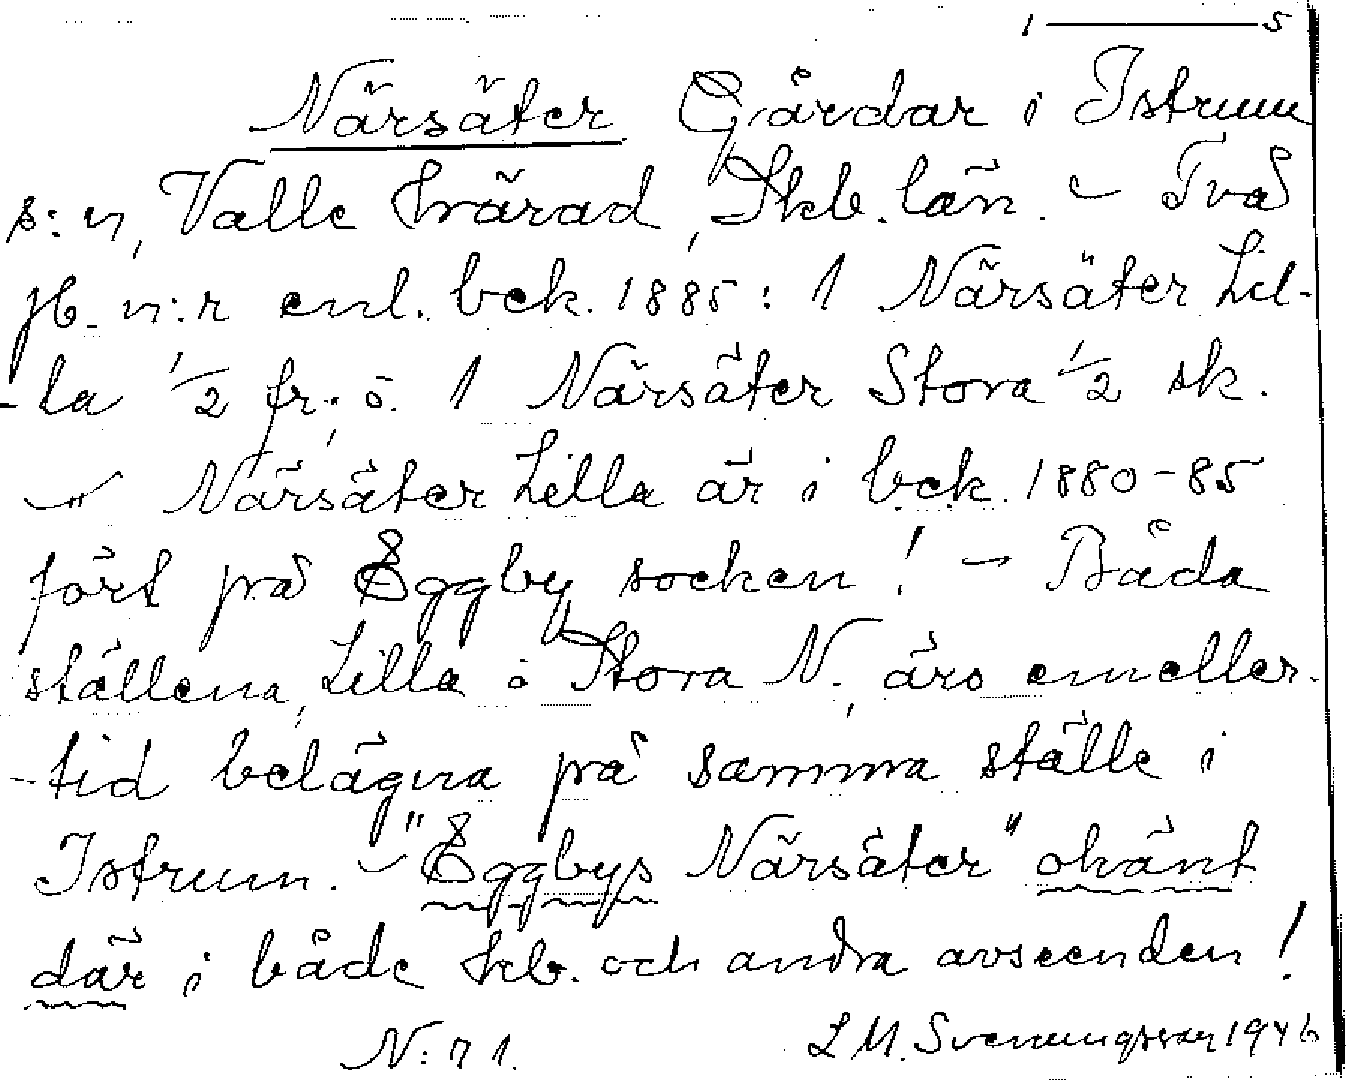 1 — 5
Närsäter Gårdar i Istrum
s:n, Valle härad, Skb. län. – Två
jb. n:r enl. bek. 1885: 1 Närsäter Lil-
-la 1/2 fr; ö. 1 Närsäter Stora 1/2 sk.
– Närsäter Lilla är i bek. 1880-85
fört på Eggby socken! – Båda
ställena, Lilla o Stora N., äro emeller-
-tid belägna på samma ställe i
Istrum. – "Eggbys Närsäter" okänt
där i både kb. och andra avseenden!
N:71. L M. Svenungsson 1946